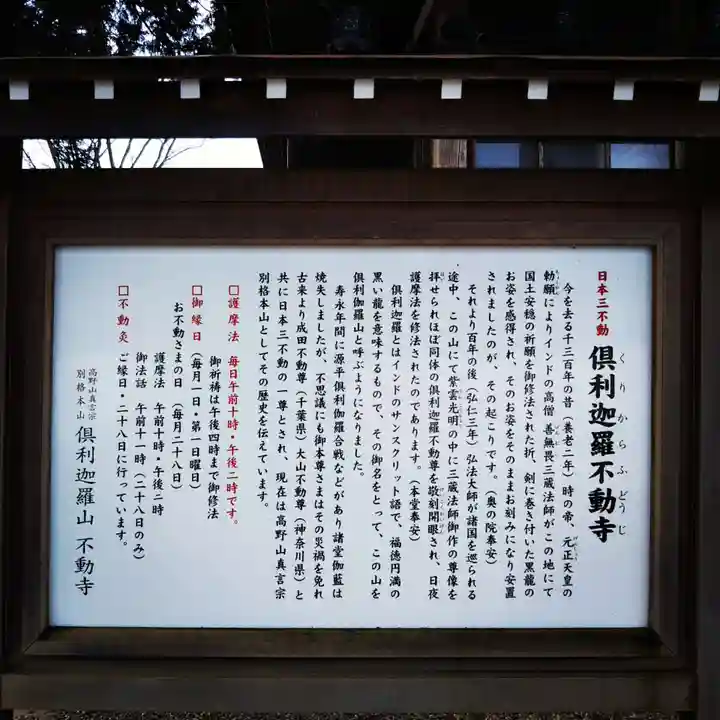 日本三不動 倶利迦羅不動寺
くりからふどうじ
今を去る千三百年の昔（養老二年）時の帝、元正天皇の
勅願によりインドの高僧 善無畏三蔵法師がこの地にて
国土安穏の祈願を御修法された折、剣に巻き付いた黒龍の
お姿を感得され、そのお姿をそのままお刻みになり安置
されましたのが、その起こりです。（奥の院奉安）
それより百年の後（弘仁三年）弘法大師が諸国を巡られる
途中、この山にて紫雲光明の中に三蔵法師御作の尊像を
拝せられほぼ同体の倶利迦羅不動尊を敬刻開眼され、日夜
護摩法を修法されたのであります。（本堂奉安）
倶利迦羅とはインドのサンスクリット語で、福徳円満の
黒い龍を意味するもので、その御名をとって、この山を
倶利伽羅山と呼ぶようになりました。
寿永年間に源平倶利伽羅合戦などがあり諸堂伽藍は
焼失しましたが、不思議にも御本尊さまはその災禍を免れ
古来より成田不動尊（千葉県）大山不動尊（神奈川県）と
共に日本三不動の一尊とされ、現在は高野山真言宗
別格本山としてその歴史を伝えています。
□護摩法 毎日午前十時・午後二時です。
御祈祷は午後四時まで御修法
□御縁日（毎月一日・第一日曜日）
お不動さまの日（毎月二十八日）
護摩法 午前十時・午後二時
御法話 午前十一時（二十八日のみ）
□不動灸 ご縁日・二十八日に行っています。
高野山真言宗
別格本山 倶利迦羅山 不動寺